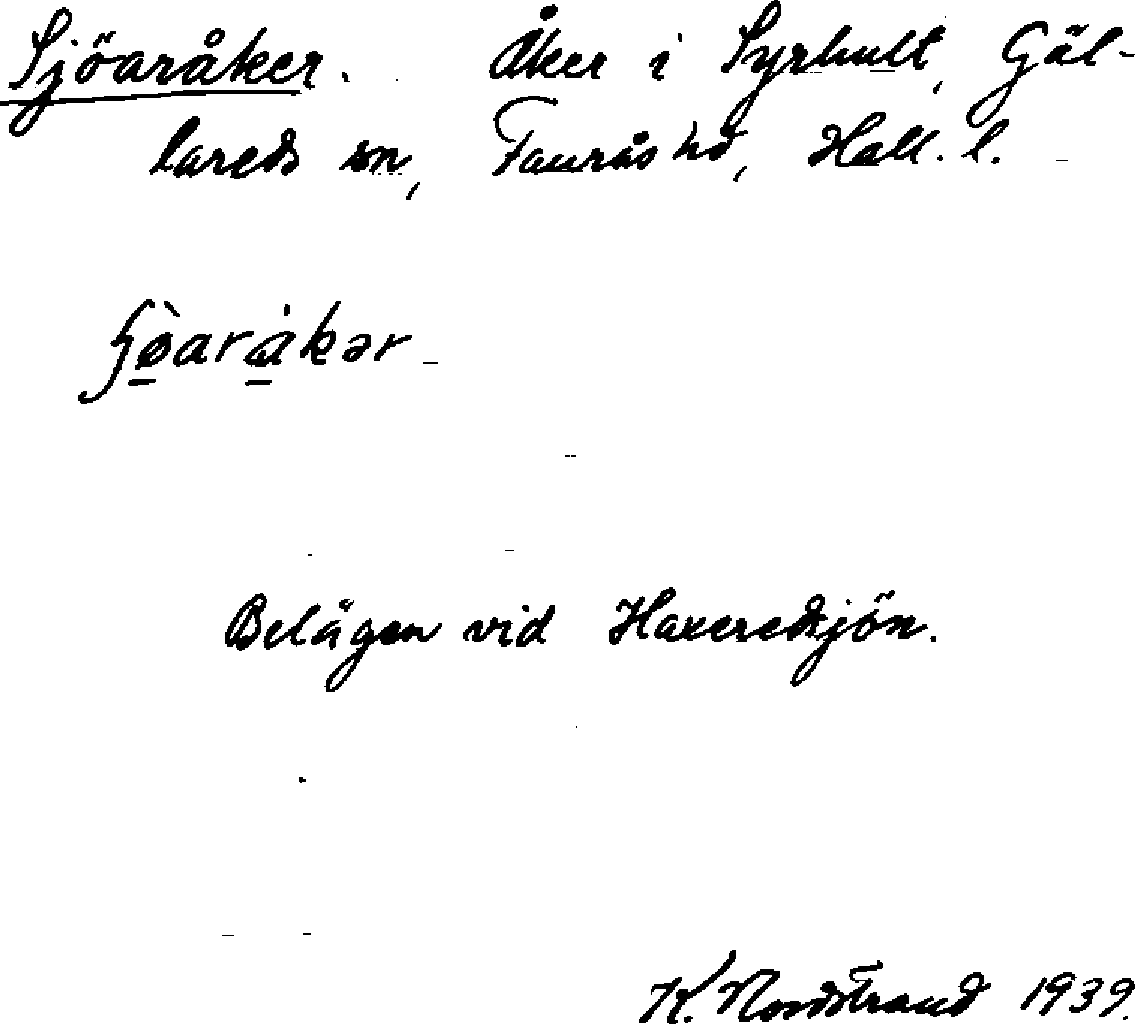 Sjöaråker. Åker i Syrhult, Gäl-
lareds sn, Faurås hd, Hall. l.
ʃö̀aråkər
Belägen vid Haxeredsjön.
K. Nordstrand 1939.